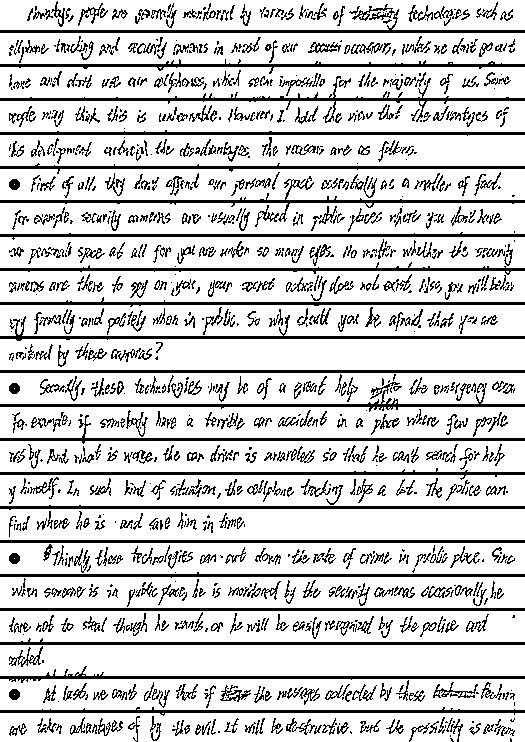 Nowadays, people are generally monitored by various kinds of technologies such as
cellphone tracking and security cameras in most of our occasions, unless we don't go out
home and don't use our cellphones, which seem impossible for the majority of us. Some
people may think this is unbearable. However, I hold the view that the advantages of
this development outweigh the disadvantages. The reasons are as follows.
● First of all, they don't offend our personal space essentially as a matter of fact.
For example, security cameras are usually placed in public places where you don't have
our personal space at all for you are under so many eyes. No matter whether the security
cameras are there to spy on you, your secret actually does not exist. Also, you will behav
very formally and politely when in public. So why should you be afraid that you are
monitored by these cameras?
● Secondly, these technologies may be of a great help when the emergency occur
For example, if somebody have a terrible car accident in a place where few people
pass by. And what is worse, the car driver is so that he can't search for help
by himself. In such kind of situation, the cellphone tracking helps a lot. The police can
find where he is and save him in time.
● Thirdly, these technologies can cut down the rate of crime in public place. Sinc
when someone is in public place, he is monitored by the security cameras occasionally, he
dare not to steal though he wants, or he will be easily recognized by the police and
catched.
● At last, we can't deny that if the messages collected by these techno
are taken advantages of by the evil. It will be destructive. But the possibility is